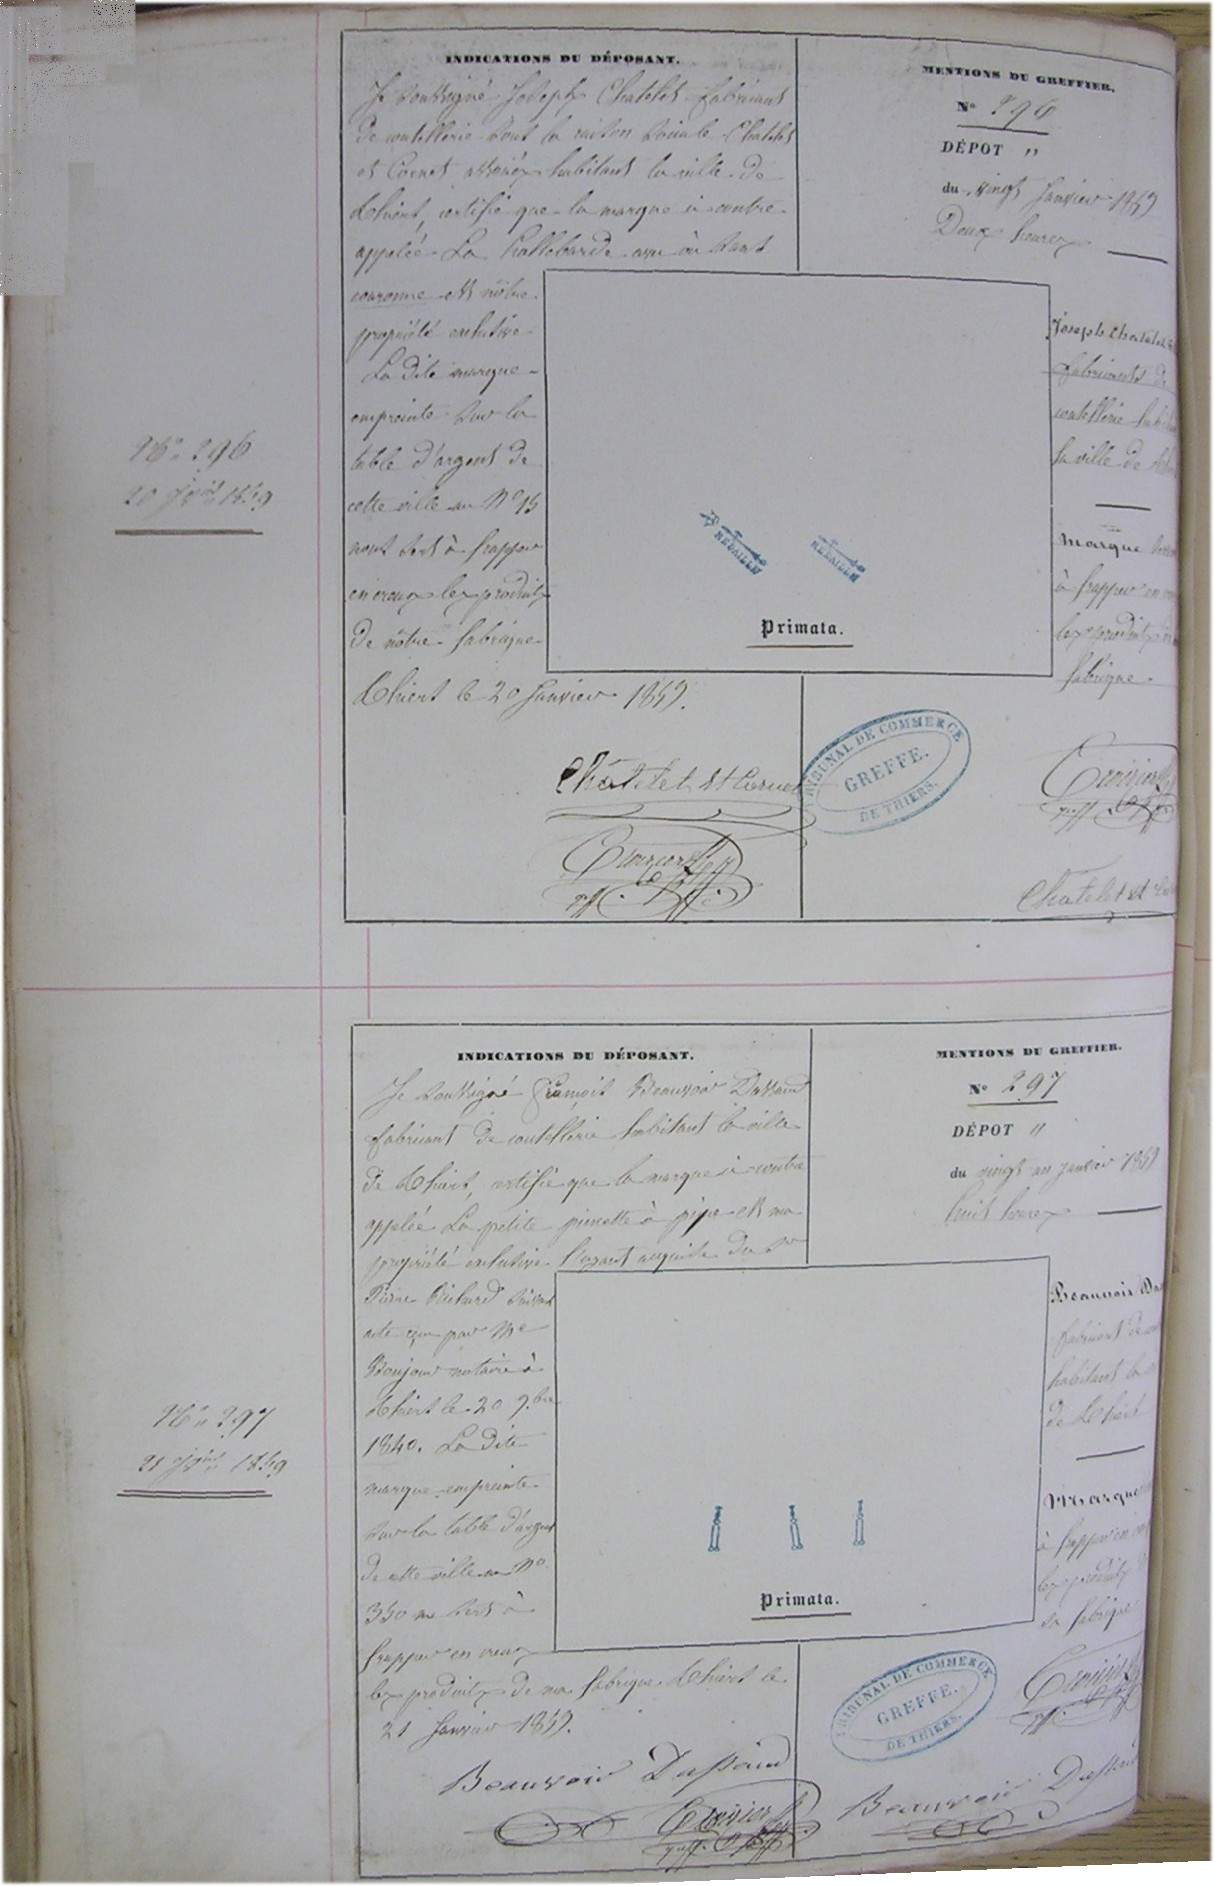 INDICATIONS DU DÉPOSANT.
Je soussigné Joseph Chatelet fabricant
de coutellerie sous la raison sociale Chatelet
et Cornet associés habitant la ville de
Thiers, certifie que la marque ci contre
appelée La hallebarde avec ou sans
couronne est nôtre
propriété exclusive
La dite marque
empreinte sur la
table d'argent de
cette ville au N°
nous sert à frapper
en creux les produits
de nôtre fabrique
Thiers le 20 Janvier 1859.
Chatelet et Cornet
Croizier
greff.
MENTIONS DU GREFFIER.
N° 296
DÉPOT "
du vingt Janvier 1859
Deux heures
Joseph Chatelet
fabricants de
coutellerie
la ville de
Marque
à frapper en
les produits
fabrique.
Croizier
greff.
Chatelet et
N° 296
20 Jvier 1859
MEDAILLE
MEDAILLE
Primata.
TRIBUNAL DE COMMERCE
GREFFE.
DE THIERS.
INDICATIONS DU DÉPOSANT.
Je soussigné François Beauvoir Dassaud
fabricant de coutellerie habitant la ville
de Thiers, certifie que la marque ci contre
appelée La petite pincette à pipe est ma
propriété exclusive l'ayant acquise du Sr
Pierre Richard suivant
acte reçu par Me
Boujour notaire à
Thiers le 20 9.bre
1840. La dite
marque empreinte
sur la table d'argent
de cette ville au No
350 me sert à
frapper en creux
les produits de ma fabrique Thiers le
21 Janvier 1859.
Beauvoir Dassaud
Croizier
greff.
MENTIONS DU GREFFIER.
N° 297
DÉPOT "
du vingt un janvier 1859
huit heures
Beauvoir
fabricant de
habitant la
de Thiers
Marque
à frapper en
les produits
sa fabrique
Croizier
greff.
Beauvoir Dassaud
N° 297
21 Jvier 1859
Primata.
TRIBUNAL DE COMMERCE
GREFFE.
DE THIERS.